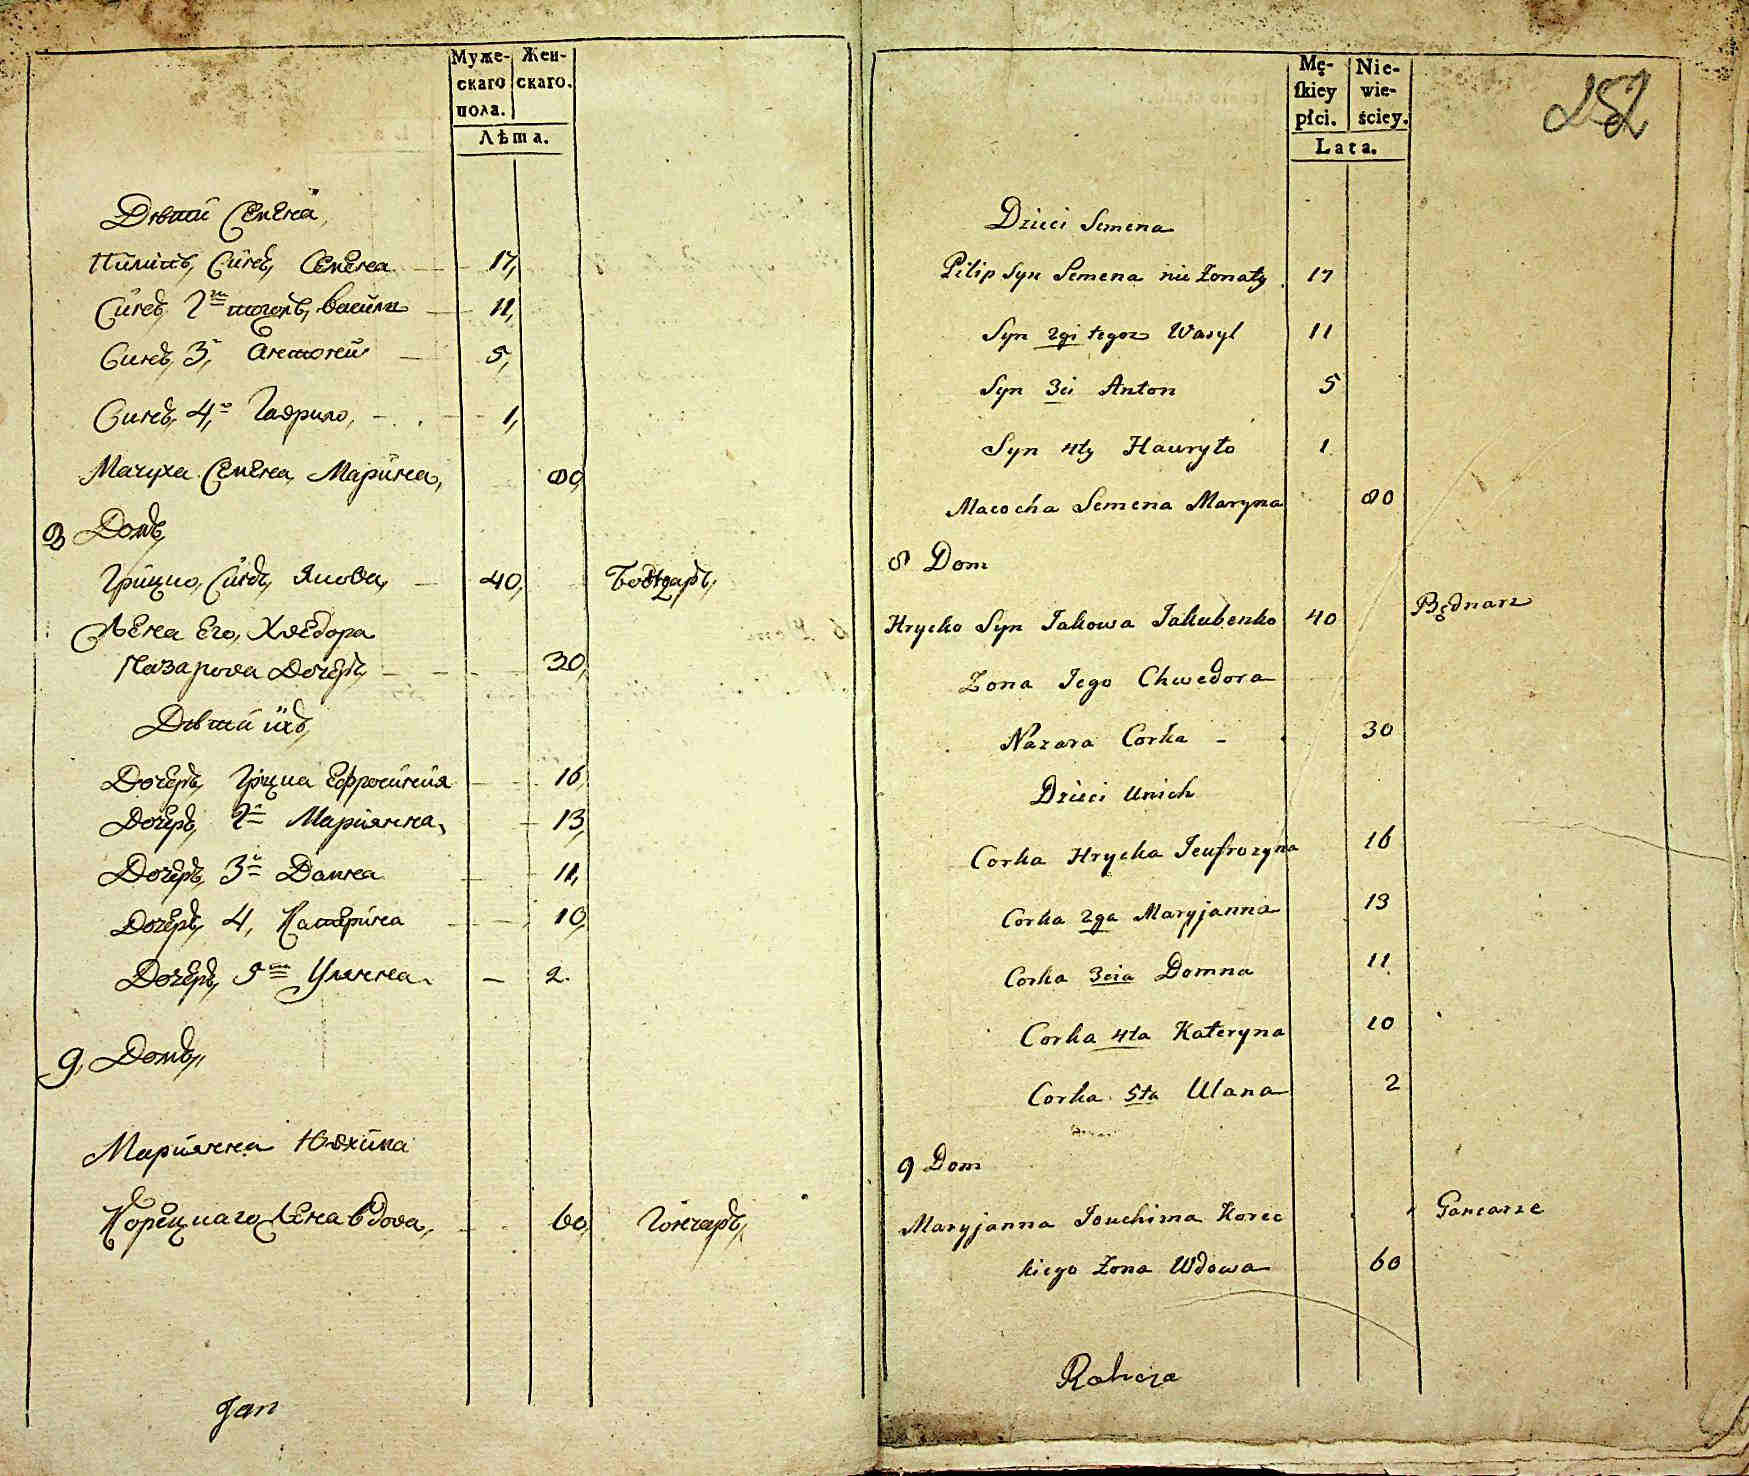 Муже-
скаго
пола.
Жен-
скаго.
Лѣта.
Дѣти Семена
Пилипъ, Синъ, Семена 17,
Синъ, 2й тогожъ, Василь 11,
Синъ, 3й, Антоней 5,
Синъ, 4й, Гаврило, 1,
Мачуха Семена, Марина, 80,
8 Домъ,
Грицко, Синъ, Якова, 40, Боднаръ,
Жена Его, Хведора
Назарова Дочеръ, 30,
Дѣти ихъ,
Дочеръ, Грицка Ефросинія 16,
Дочеръ, 2я Маріянна, 13,
Дочеръ, 3я Домна 11,
Дочеръ, 4, Катерина 10,
Дочеръ, 5та Улянна 2.
9, Домъ,
Маріянна Юхима
Корецкаго Жена вдова, 60, Гончаръ,
Jan
Mę-
ſkiey
płci.
Nie-
wie-
ściey.
Lata.
252
Dzieci Semena
Pilip Syn Semena nie Żonaty 17
Syn 2gi tegoz Wasyl 11
Syn 3ci Anton 5
Syn 4ty Hawryło 1
Macocha Semena Maryna 80
8 Dom
Hrycko Syn Jakowa Jakubenko 40 Będnarz
Zona Jego Chwedora
Nazara Corka - 30
Dzieci Unich
Corka Hrycka Jeufrozyna 16
Corka 2ga Maryjanna 13
Corka 3cia Domna 11
Corka 4ta Kateryna 10
Corka 5ta Ulana 2
9 Dom
Maryjanna Jouchima Korec Garcarze
kiego Żona Wdowa 60
Rahoza